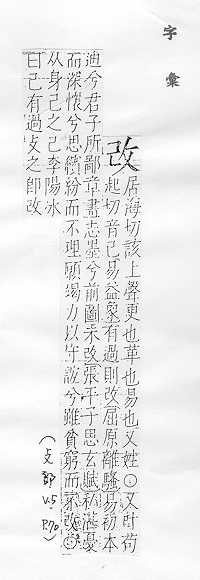 字彙
改
居海切該上聲更也革也易也又姓○又叶苟
起切音己易益象有過則改屈原離騷易初本
迪兮君子所鄙章畫志墨兮前圖未改張平子思玄賦私湛憂
而深懷兮思繽紛而不理願竭力以守誼兮雖貧窮而不改○
从身己之己李陽冰
曰己有過攴之即改
(攴部 V.5 P.70)